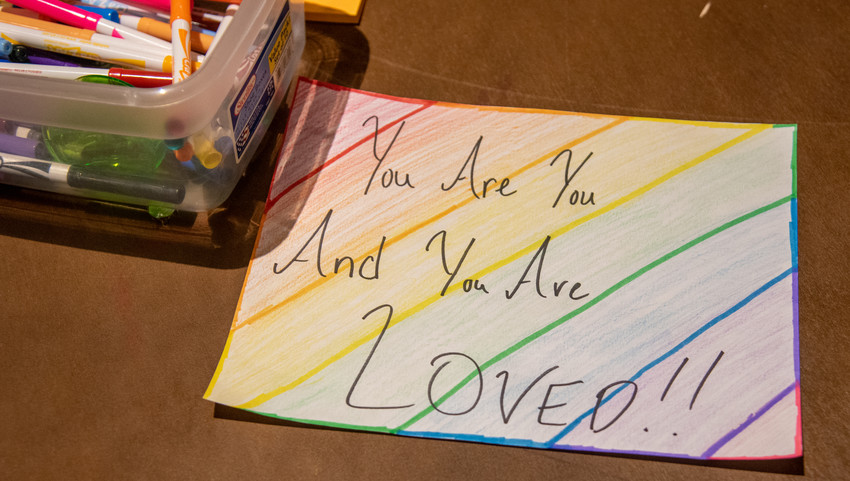 You Are You
And You Are
LOVED!!